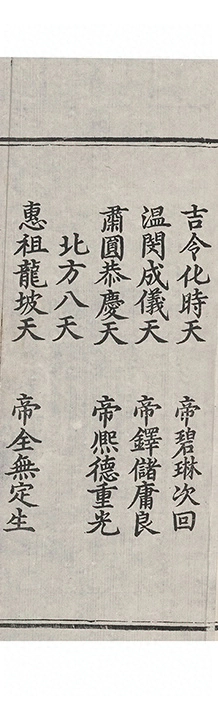 吉令化時天 帝碧琳次回
温閔成儀天 帝鐸儲庸良
肅圓恭慶天 帝熈德重光
北方八天
惠祖龍坡天 帝全無定生